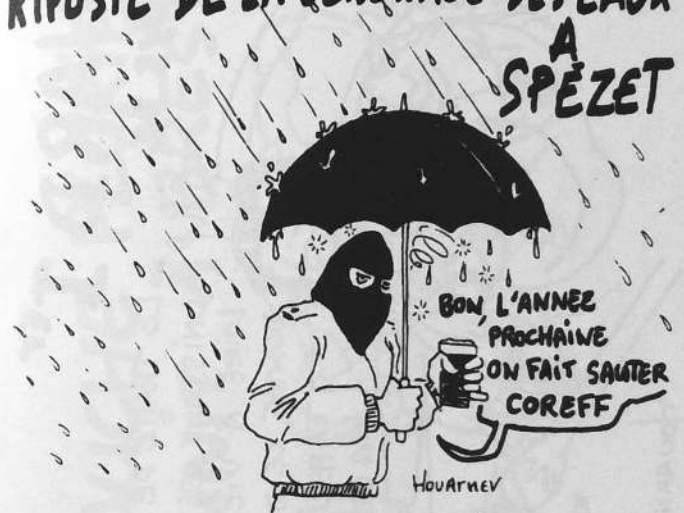 RIPOSTE DE LA
À
SPÉZET
BON, L'ANNÉE
PROCHAINE
ON FAIT SAUTER
COREFF
HOUARNEV